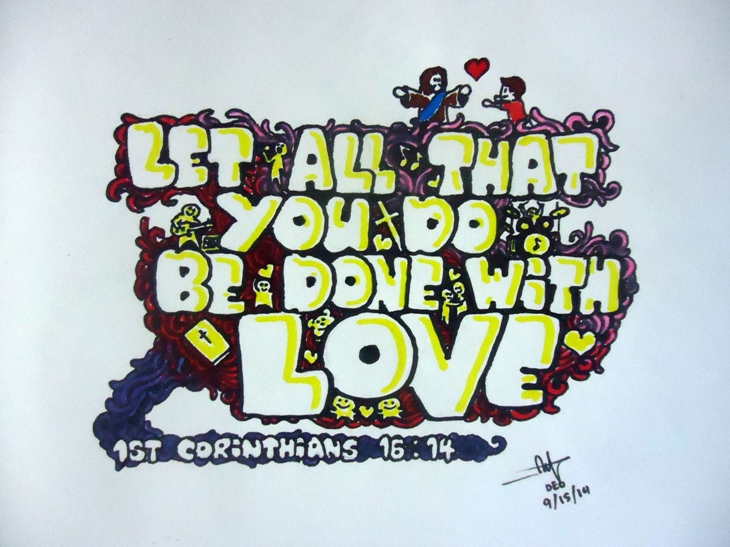 LET ALL THAT
YOU DO
BE DONE WITH
LOVE
1ST CORINTHIANS 16:14
DEO
9/15/14